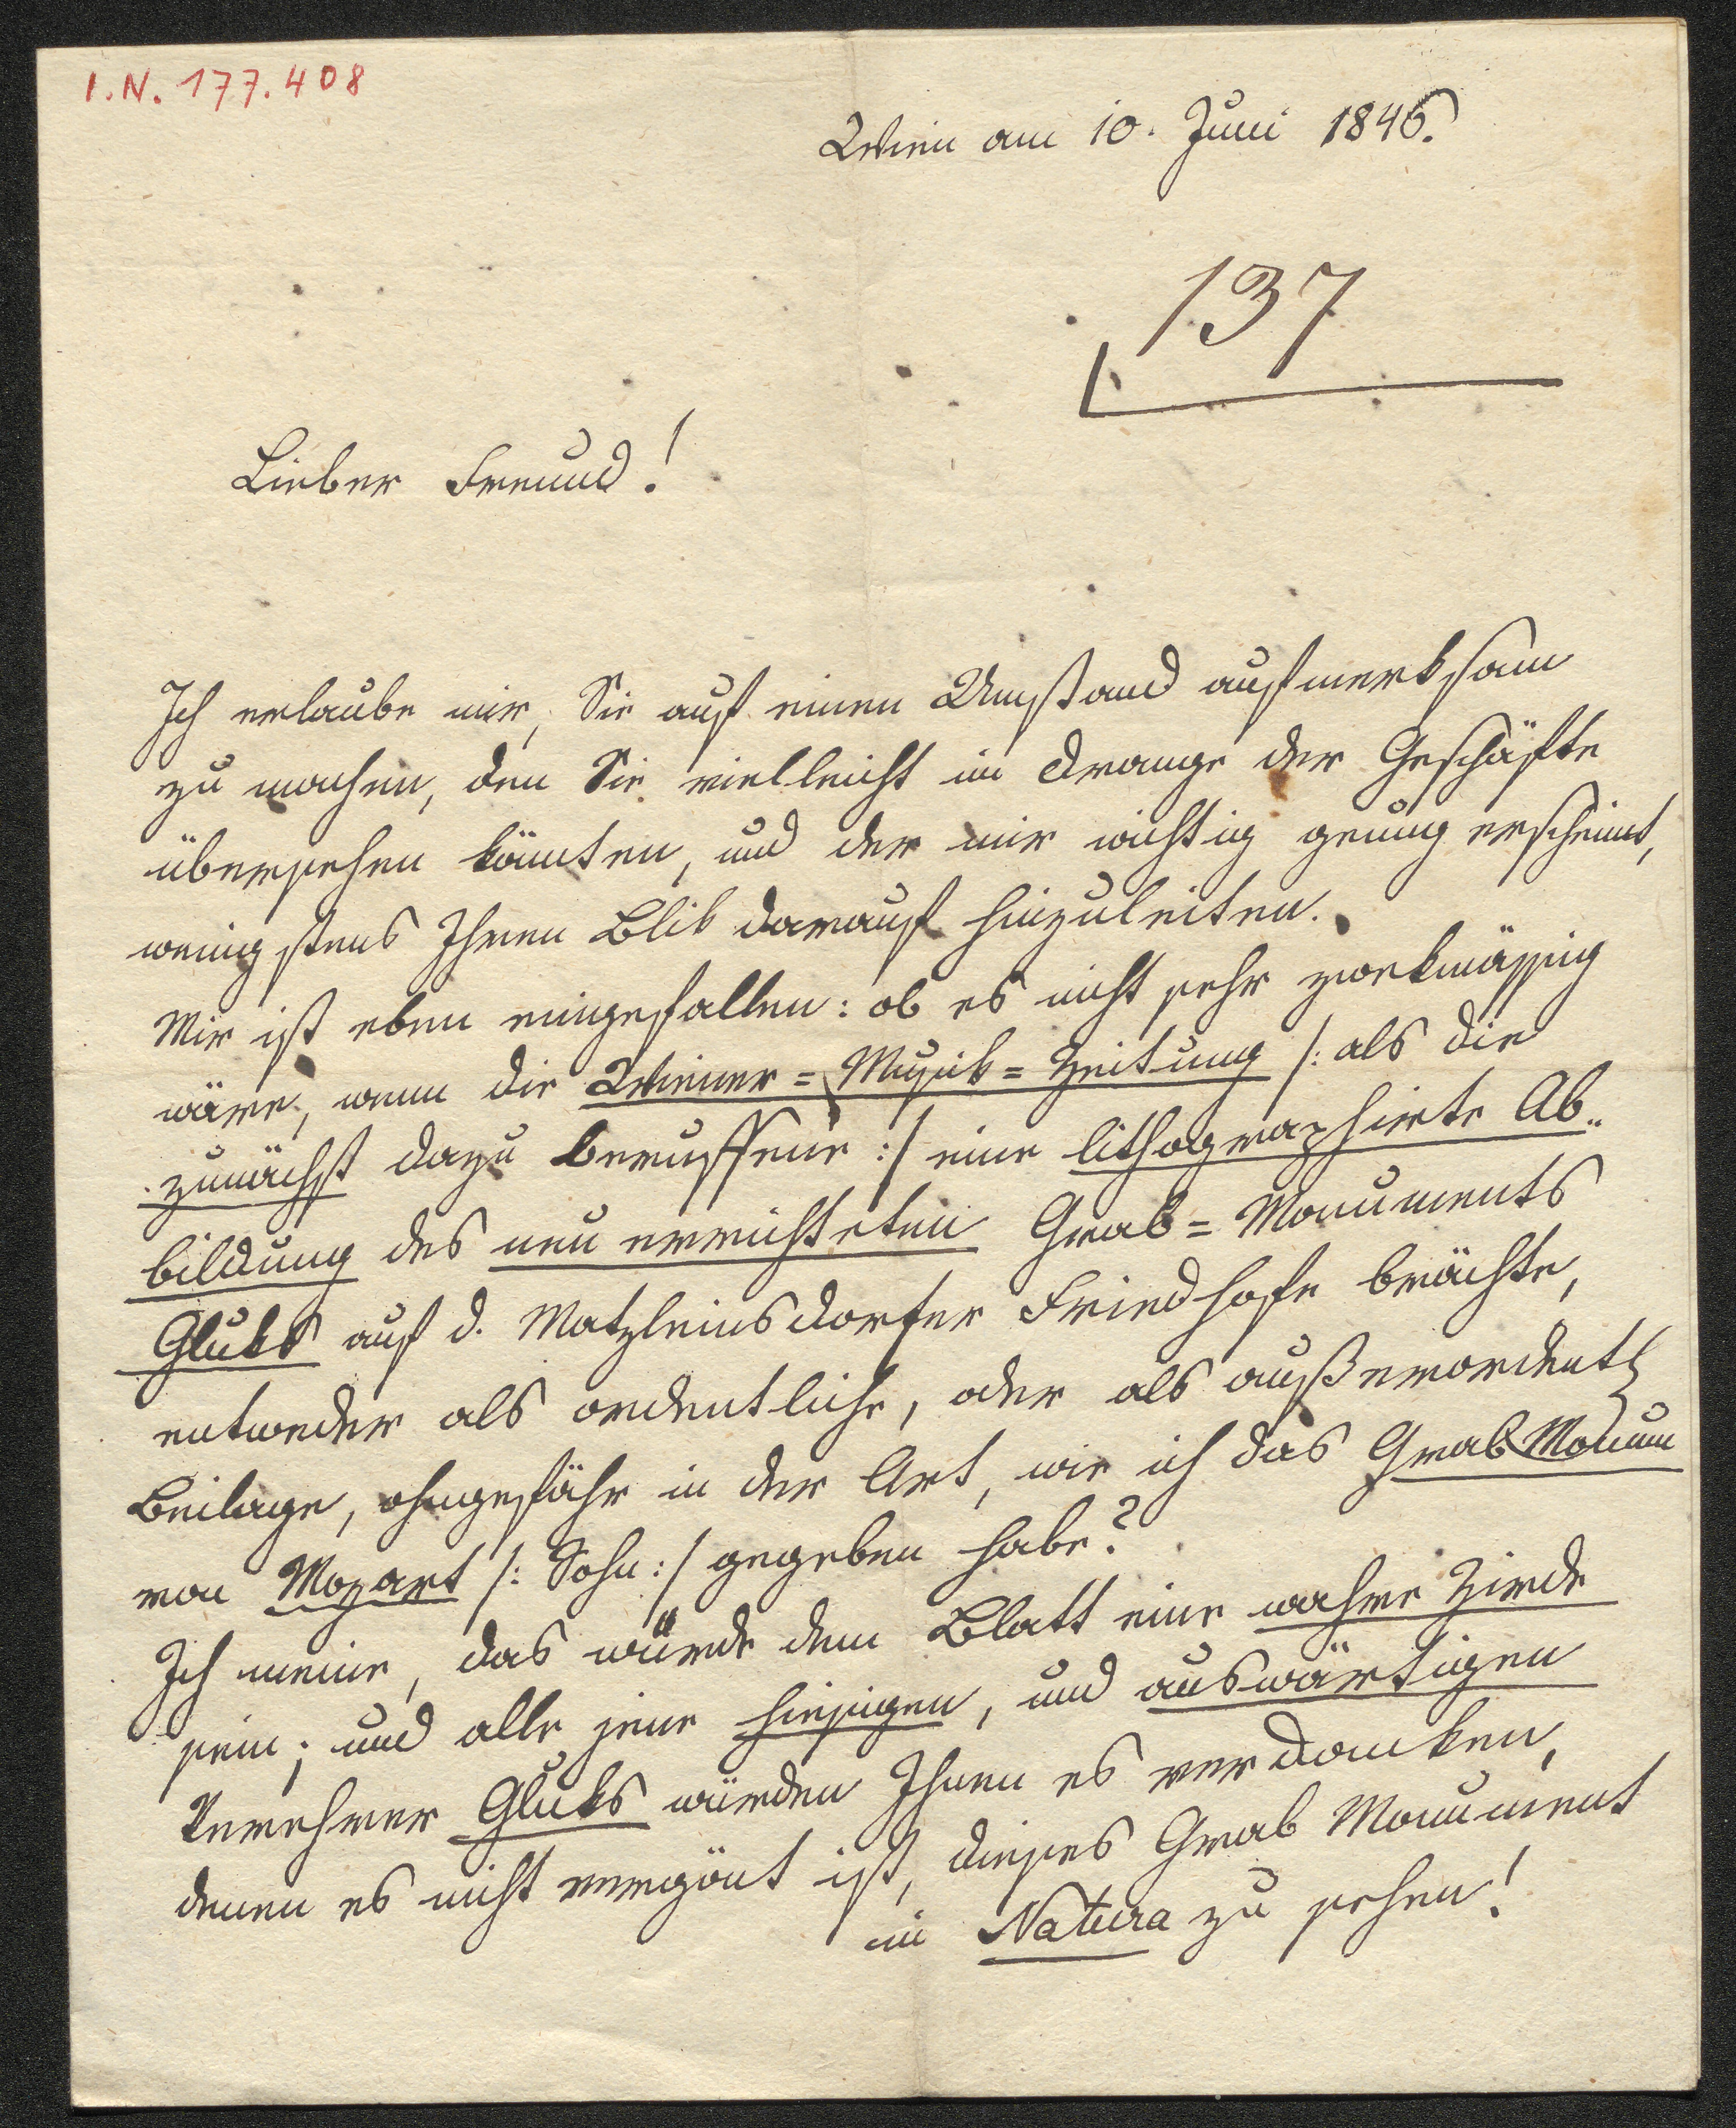 I.N. 177.408
Wien am 10. Juni 1846.
137
Lieber Freund!
Ich erlaube mir, Sie auf einen Umstand aufmerksam
zu machen, den Sie vielleicht im Drange der Geschäfte
übersehen könnten, und der mir wichtig genug erscheint,
wenigstens Ihren Blik darauf hinzuleiten.
Mir ist eben eingefallen: ob es nicht sehr zwekmässig
wäre, wenn die Wiener=Musik=Zeitung /: als die
zunächst dazu beruffene :/ eine lithographirte Ab„
bildung des neu errichteten Grab=Monuments
Gluks auf d. Matzleinsdorfer Friedhofe brächte,
entweder als ordentliche, oder als außerordentl
Beilage, ohngefähr in der Art, wie ich das Grab Monum
von Mozart /: Sohn :/ gegeben habe?
Ich meine, das würde dem Blatt eine wahre Zierde
sein; und alle jene hiesigen, und auswärtigen
Verehrer Gluks würden Ihnen es verdanken,
denen es nicht vergönt ist, dieses Grab Monument
in Natura zu sehen!